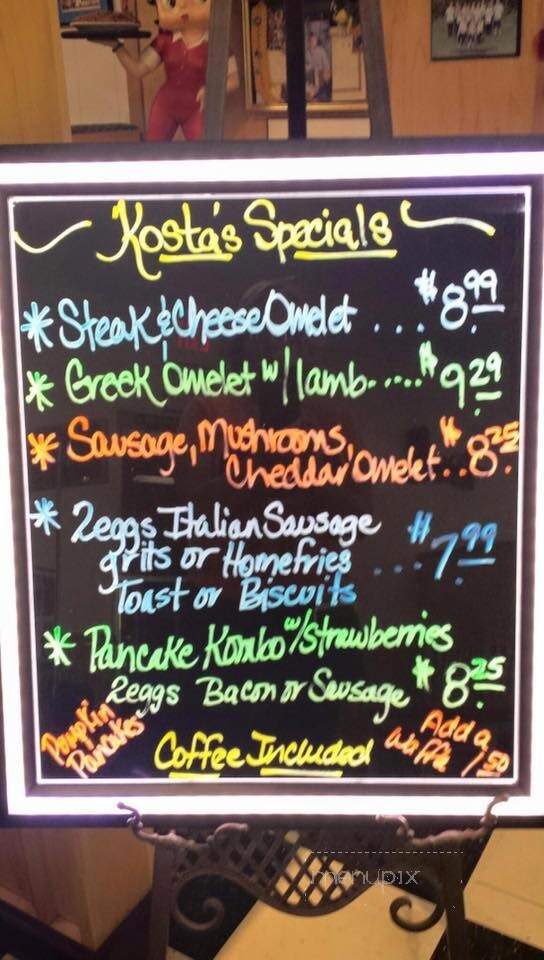 Kosta's Specials
* Steak & Cheese Omelet ... $8.99
* Greek Omelet w/ lamb..... $9.29
* Sausage, Mushrooms,
Cheddar Omelet.. $8.25
* 2eggs Italian Sausage
grits or Homefries ... $7.99
Toast or Biscuits
* Pancake Kombo w/strawberries
2eggs Bacon or Sausage $8.25
Pumpkin
Pancakes
Coffee Included
Add a
Waffle 1.50
menupix